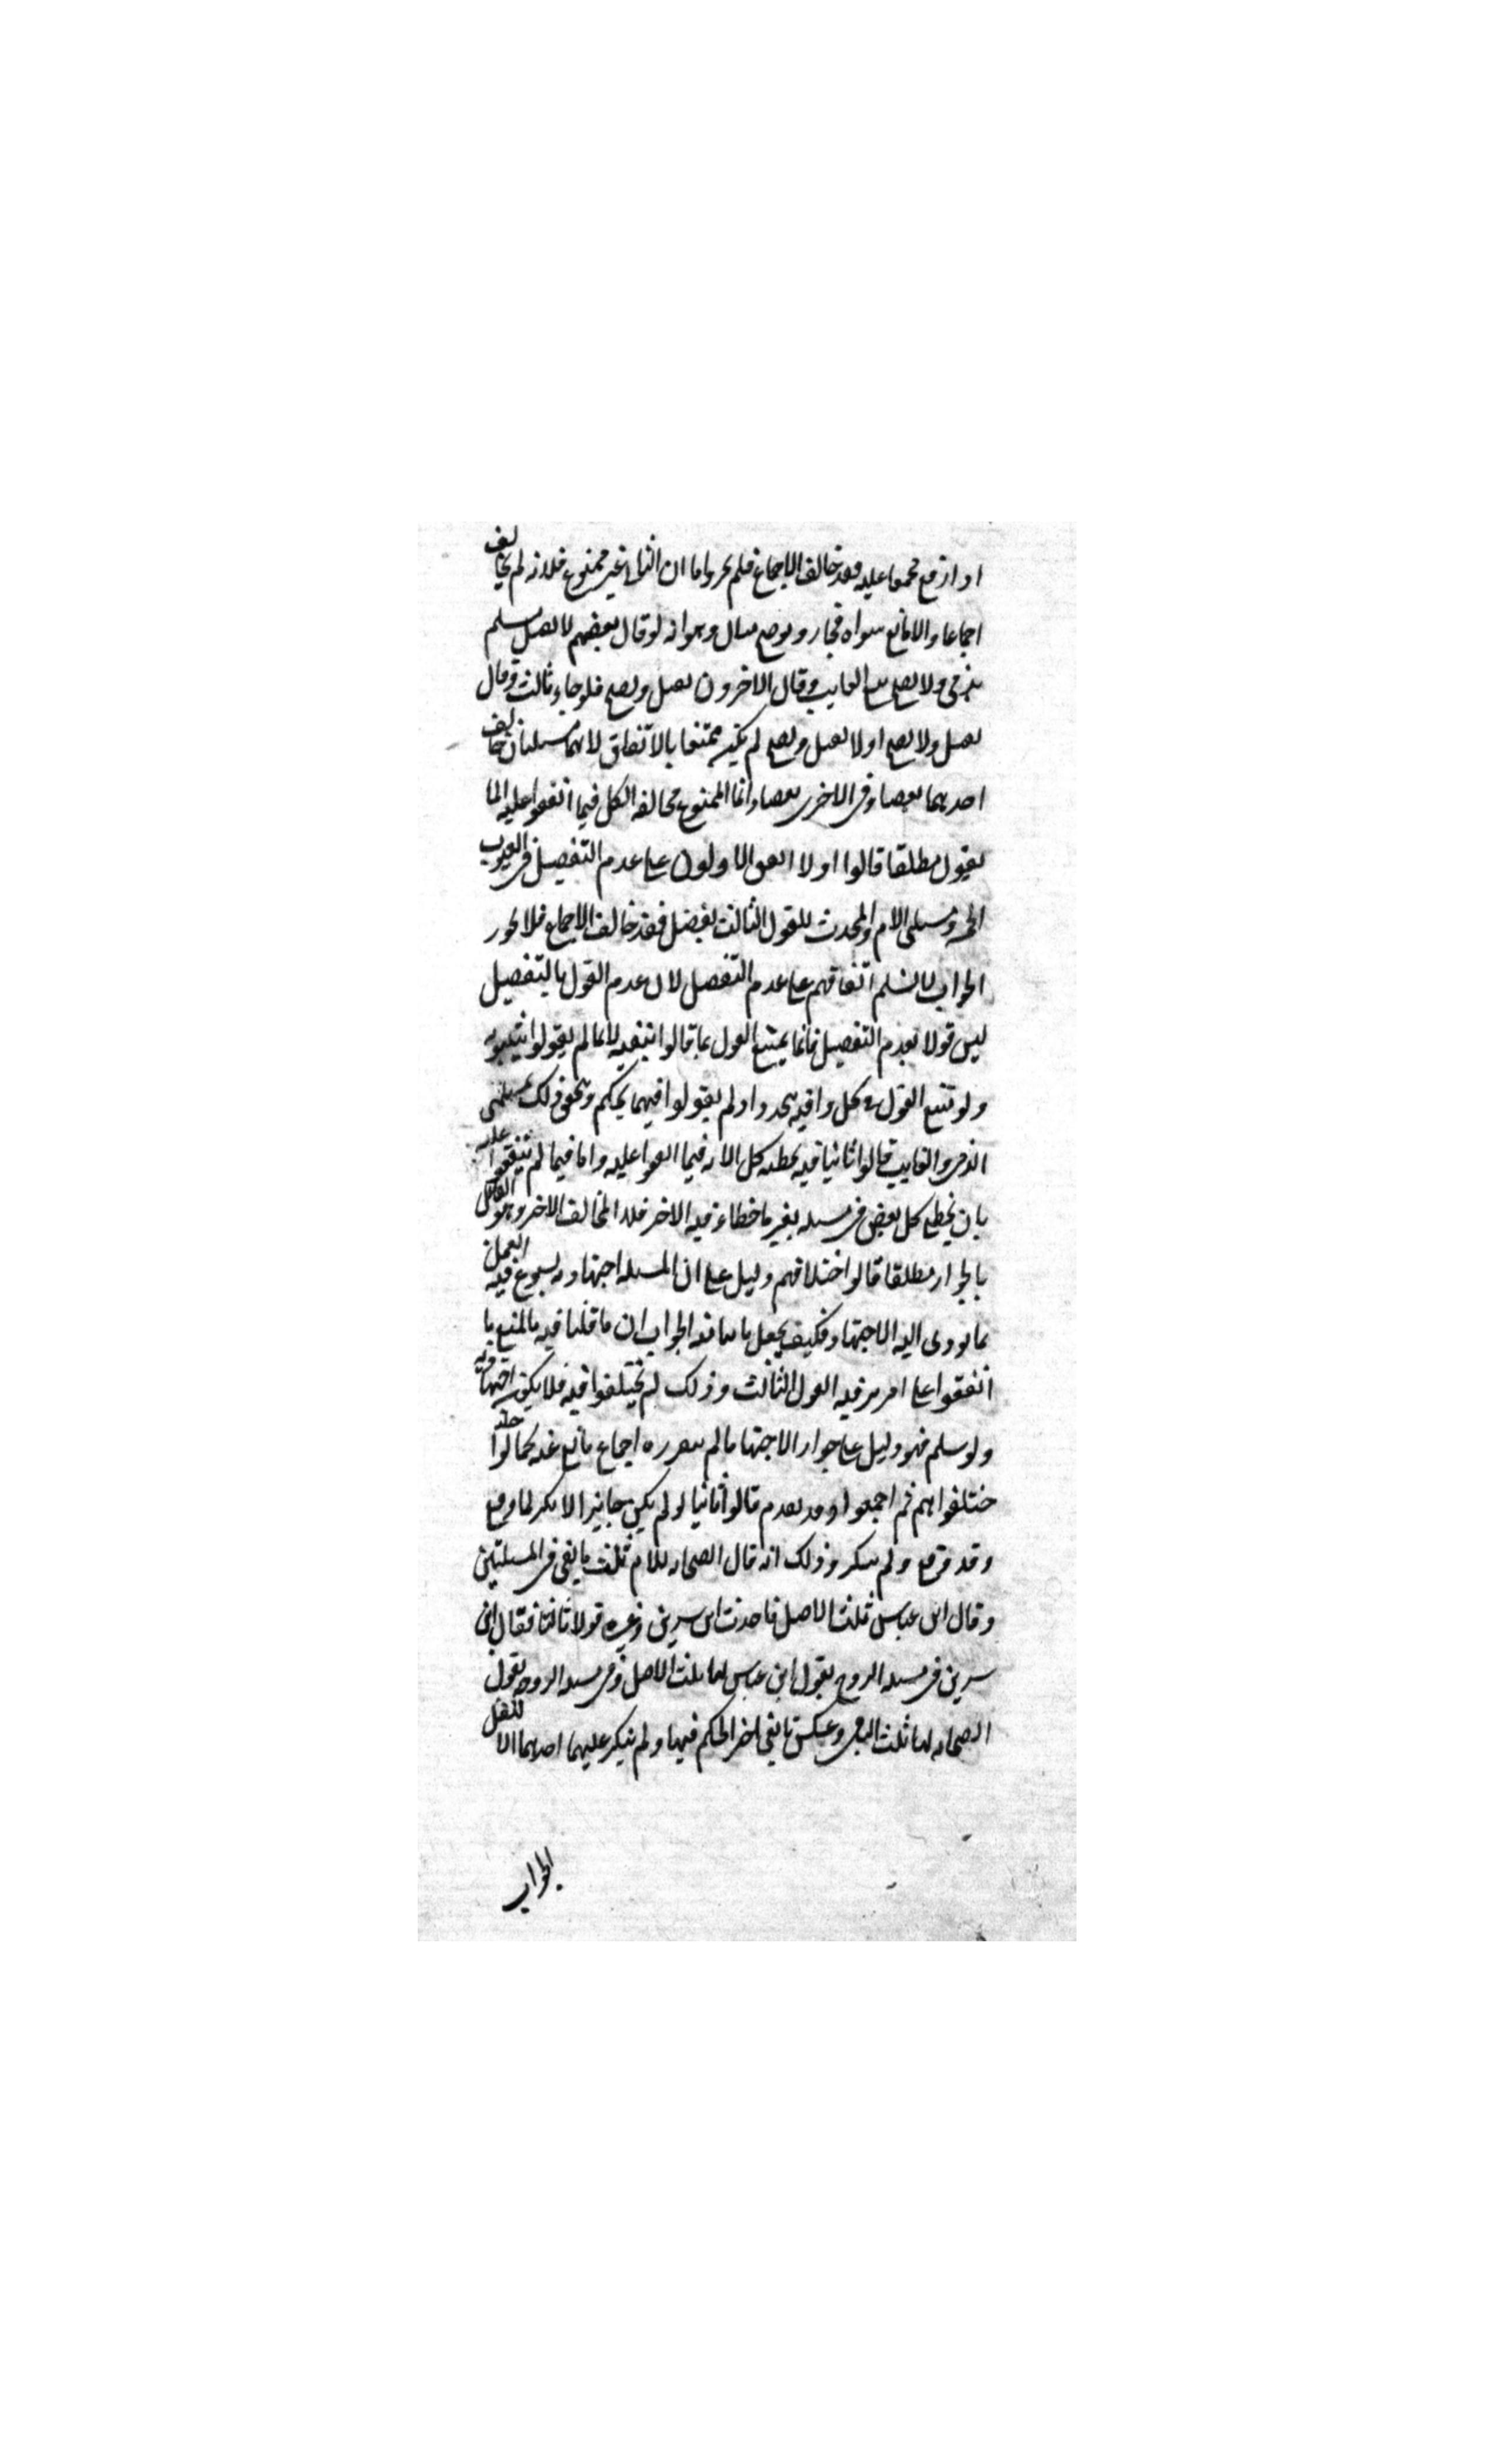 او ارفع مجمعا عليه فقد خالف الاجماع فلم يجز واما ان الثانى غير ممنوع فلانه لم يخالف
اجماعا والامانع سواه فجاز ويوضح مثال وهو انه لو قال بعضهم لا يقتل مسلم
بذمى ولا يصح بيع الغايب وقال الاخرون يقتل ويصح فلو جاء ثالث وقال
يقتل ولا يصح او لا يقتل ويصح لم يكن ممتنعا بالاتفاق لانهما مسئلتان خالف
احديهما بعضا وفى الاخرى بعضا وانما الممنوع مخالفة الكل فيما اتفقوا عليه الما
بقول مطلقا قالوا اولا اتفق الاولون على عدم التفصيل فى العيوب
الخمسة ومسئلتى الام والمحدث للقول الثالث يفصل فقد خالف الاجماع فلا يجوز
الجواب لا نسلم اتفاقهم على عدم التفصيل لان عدم القول بالتفصيل
ليس قولا بعدم التفصيل فانما يمتنع القول بما قالوا بنفيه لا بما لم يقولوا بثبوته
ولو تمنع القول فى كل واقعة تتجدد اولم يقولوا فيها بحكم وتحقق ذلك بمسئلتى
الذمى والغايب قالوا ثانيا فيه تخطئة كل الامة فيما اتفقوا عليه واما فيما لم يتفقوا عليه
بان يخطئ كل بعض فى مسئلة بغير ما خطاء فيه الاخر فلا المخالف الاخر وهو القائل
بالجواز مطلقا قالوا اختلافهم دليل على ان المسئلة اجتهادية يسوغ فيه العمل
بما يودى اليه الاجتهاد فكيف يجعل مانعا منه الجواب ان ما قلنا فيه بالمنع ما
اتفقوا على امر يرفعه القول الثالث وذلك لم يختلفوا فيه فلا يكون اجتهادية
ولو سلم فهو دليل على جواز الاجتهاد مالم يتقرر اجماع مانع عنه كما لو ا
ختلفوا هم ثم اجمعوا وقد تقدم قالوا ثانيا لو لم يكن جايزا لانكر لما وقع
وقد وقع ولم ينكر وذلك انه قال الصحابة للام ثلث ما بقى فى المسئلتين
وقال ابن عباس ثلث الاصل فاحدث ابن سيرين وغيره قولا ثالثا فقال ابن
سيرين فى مسئلة الزوج بقول ابن عباس لها ثلث الاصل وفى مسئلة الزوجة بقول
الصحابة لها ثلث الباقى وعكس تابعى اخر الحكم فيها ولم ينكر عليهما احدهما الا لنقل
الجواب